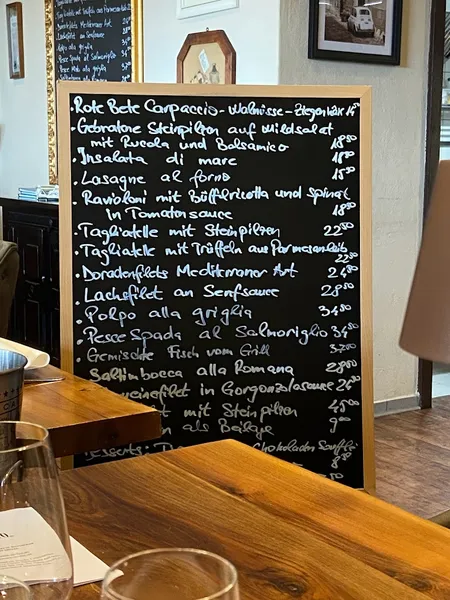 · Rote Bete Carpaccio - Walnüsse - Ziegenkäse
· Gebratene Steinpilzen auf Wildsalat
mit Rucola und Balsamico 18⁵⁰
· Insalata di mare
· Lasagne al forno 15⁵⁰
· Ravioloni mit Büffelricotta und Spinat
in Tomatensauce 18⁵⁰
· Tagliatelle mit Steinpilzen 22⁵⁰
· Tagliatelle mit Trüffeln aus Parmesanlaib
22⁵⁰
· Doradenfilets Mediterraner Art 24⁵⁰
· Lachsfilet an Senfsauce 28⁵⁰
· Polpo alla griglia 34⁵⁰
· Pesce Spada al Salmoriglio 34⁵⁰
· Gemischte Fisch vom Grill
Saltimbocca alla Romana 28⁵⁰
weinefilet in Gorgonzolasauce
mit Steinpilzen 45⁰⁰
als Beilage 9⁰⁰
Desserts: Schokoladen Soufflé